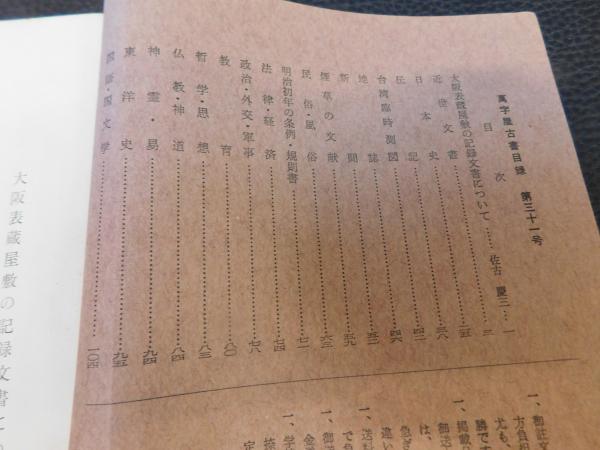 萬字屋古書目録 第三十一号
目次
大阪表蔵屋敷の記録文書について……佐古 慶三…一
近世文書…三
日本史…三五
伝記…三八
台湾臨時測図…四二
地誌…四六
新聞…五二
煙草の文献…五九
民俗・風俗…六三
明治初年の条例・規則書…七一
法律・経済…七四
政治・外交・軍事…七六
教育…八〇
哲学・思想…八三
仏教・神道…八四
神霊・易…九四
東洋史…九五
国語・国文学…一〇四
一、御註文
方負担
尤も、
勝です
一、掲載
御送
は、
急
違い
一、送料
で
一、御
金
一、学
大阪表蔵屋敷の記録文書に